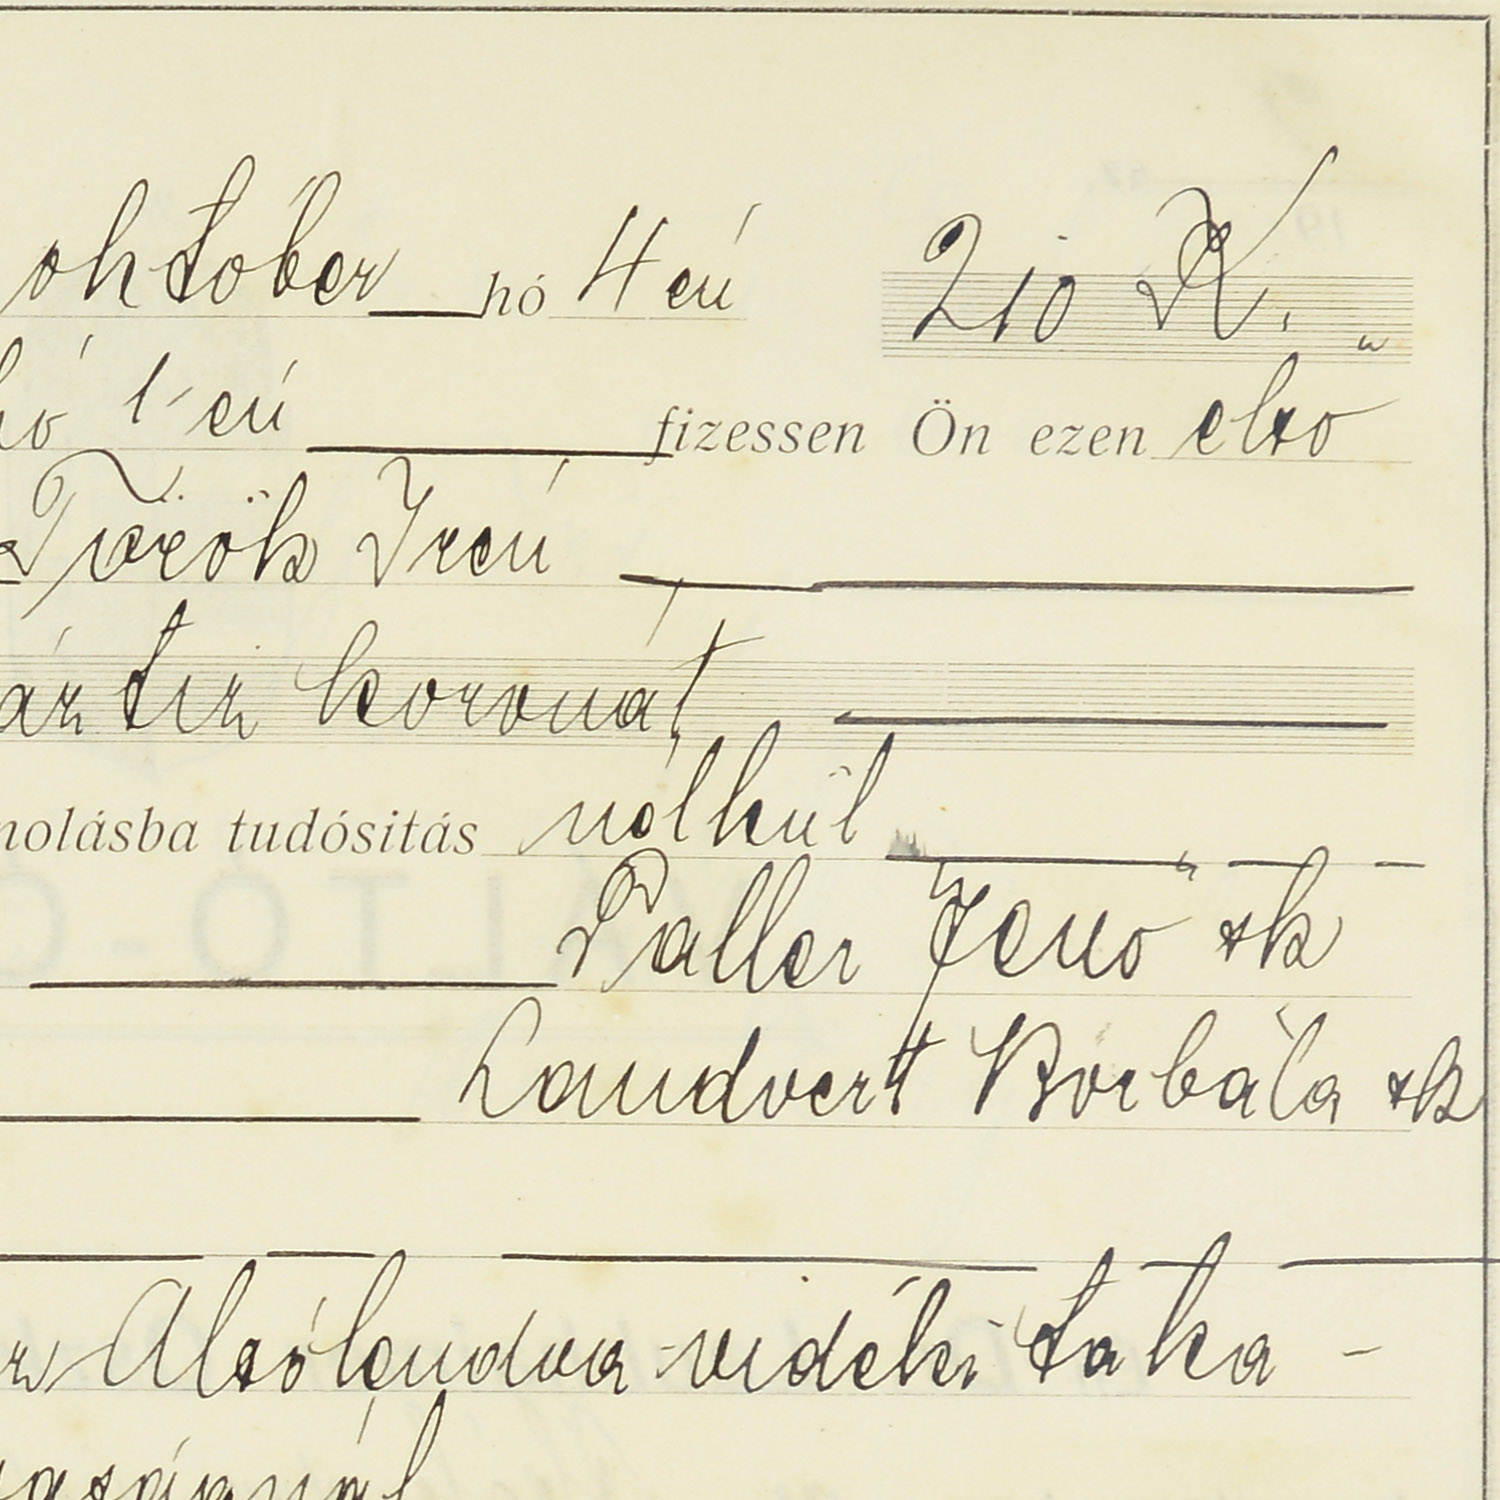 október hó 4 én 210 K. „
hó 1-én fizessen Ön ezen első
Török Irén
áz tiz koronát
molásba tudósitás nélkül
Paller Jenő sk
Landvert Borbála sk
Alsólendva-vidéki taka-